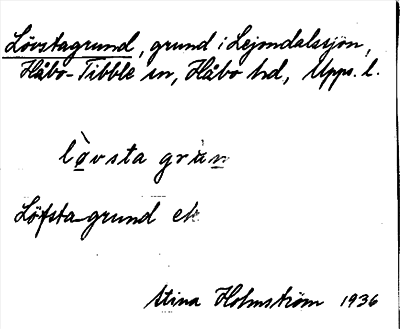 Lövstagrund, grund i Lejondalssjön,
Håbo-Tibble sn, Håbo hd, Upps. l.
lòvsta grùn
Löfsta-grund ek
Stina Holmström 1936